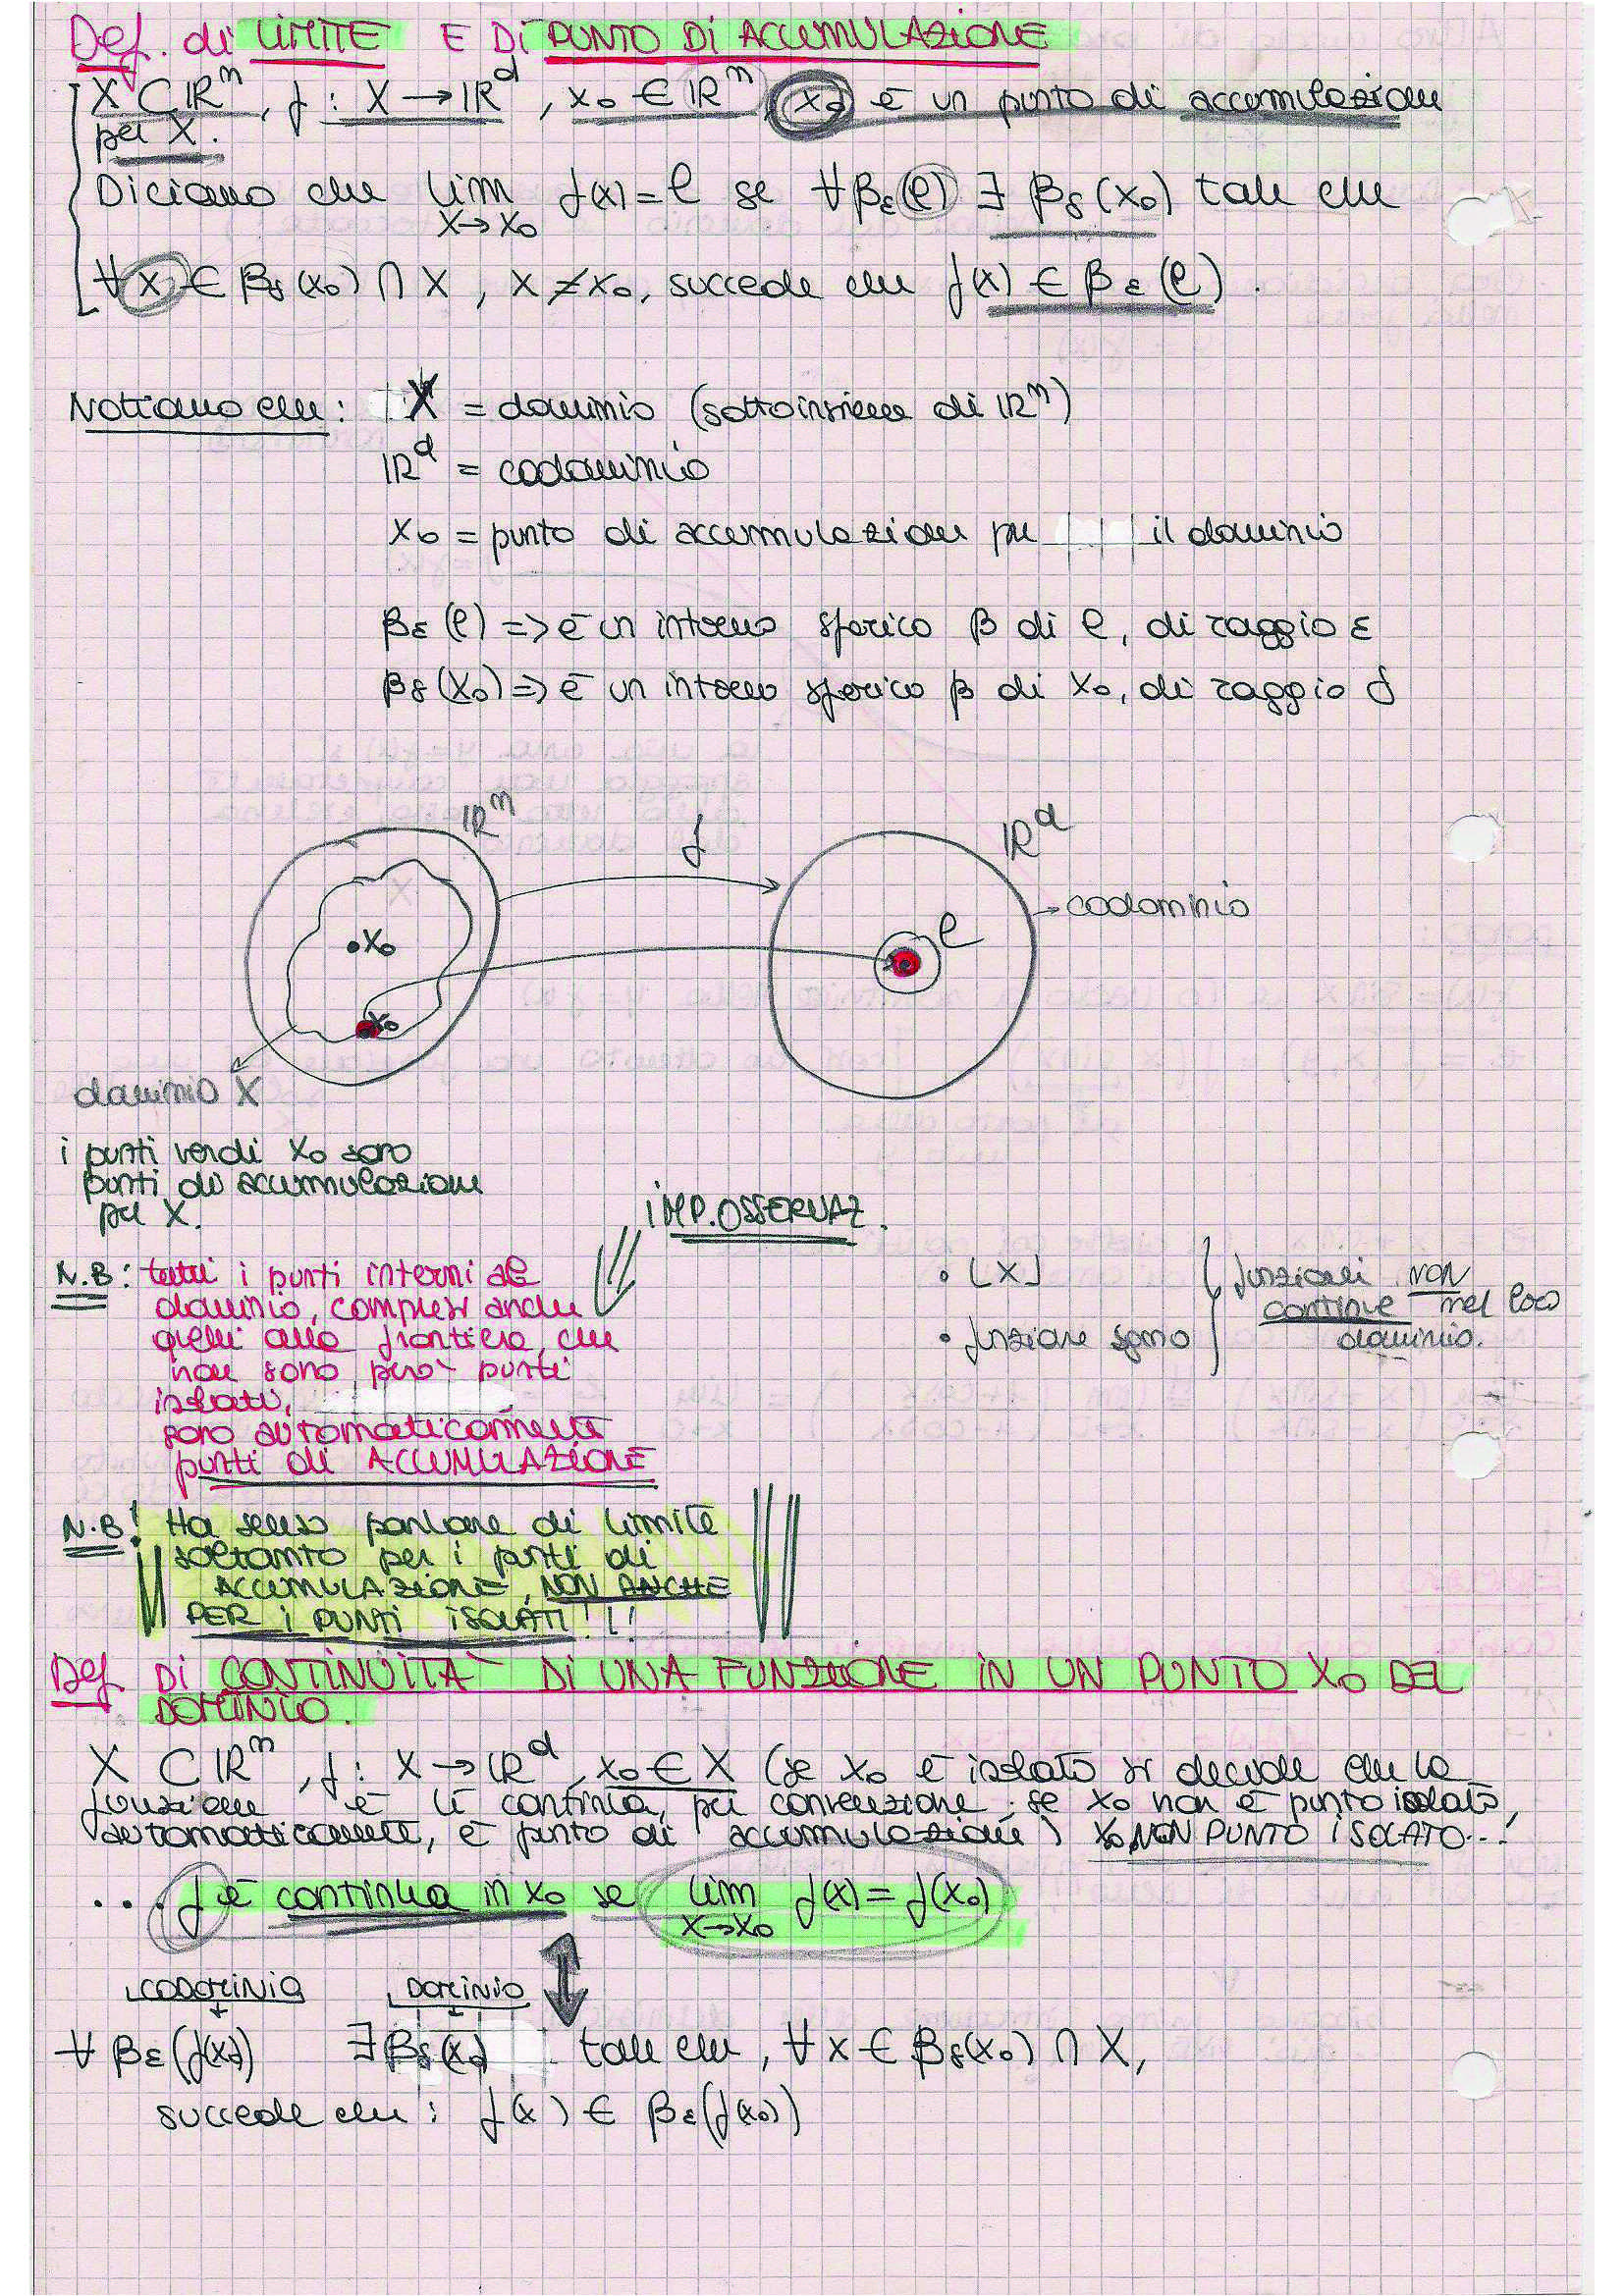 Def. di LIMITE E DI PUNTO DI ACCUMULAZIONE
X ⊂ ℝⁿ, f : X → ℝᵈ, x₀ ∈ ℝⁿ, x₀ è un punto di accumulazione
per X.
Diciamo che lim f(x) = l se ∀ βε(l) ∃ βδ(x₀) tale che
x→x₀
∀ x ∈ βδ(x₀) ∩ X, x ≠ x₀, succede che f(x) ∈ βε(l).
Notiamo che: X = dominio (sottoinsieme di ℝⁿ)
ℝᵈ = codominio
x₀ = punto di accumulazione per il dominio
βε(l) => è un intorno sferico β di l, di raggio ε
βδ(x₀) => è un intorno sferico β di x₀, di raggio δ
ℝⁿ f ℝᵈ
→ codominio
l
x₀
x₀
dominio X
i punti verdi x₀ sono
punti di accumulazione
per X.
IMP. OSSERVAZ.
N.B: tutti i punti interni al
dominio, compresi anche
quelli alla frontiera, che
non sono però punti
isolati,
sono automaticamente
punti di ACCUMULAZIONE
• [x]
• funzione segno
funzioni NON
continue nel loro
dominio.
N.B! Ha senso parlare di limite
soltanto per i punti di
ACCUMULAZIONE, NON ANCHE
PER I PUNTI ISOLATI!!!
Def. DI CONTINUITÀ DI UNA FUNZIONE IN UN PUNTO X₀ DEL
DOMINIO.
X ⊂ ℝⁿ, f : X → ℝᵈ, x₀ ∈ X (se x₀ è isolato si decide che la
funzione è lì continua, per convenzione; se x₀ non è punto isolato,
automaticamente, è punto di accumulazione) x₀ NON PUNTO ISOLATO...
... f è continua in x₀ se lim f(x) = f(x₀)
x→x₀
CODOMINIO DOMINIO
∀ βε(f(x₀)) ∃ βδ(x₀) tale che, ∀ x ∈ βδ(x₀) ∩ X,
succede che: f(x) ∈ βε(f(x₀))